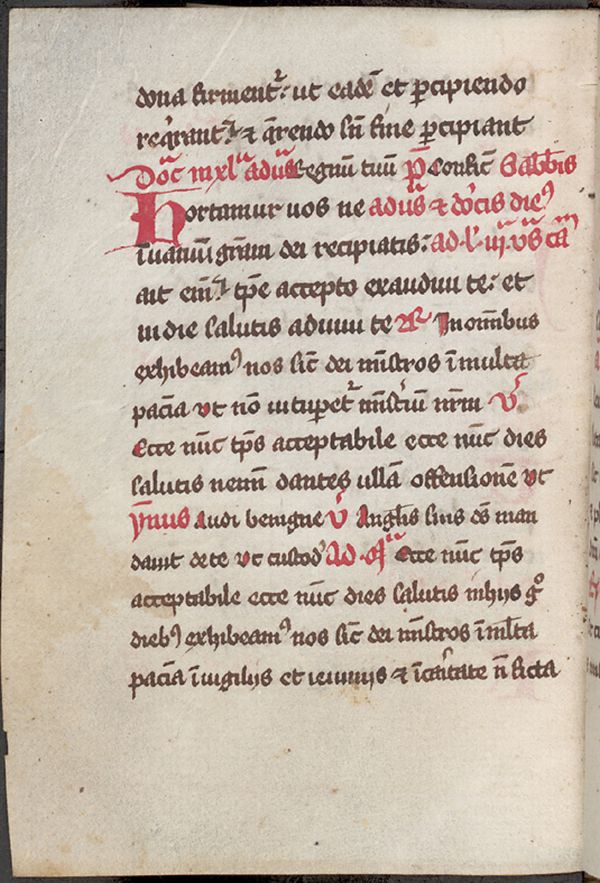 dona firment᷑: ut eadē et ꝑcipiendo
reqͥrant᷑ ⁊ q̄rendo sn̄ fine ꝑcipiant
Dōc inxlᵃ ad uꝰ Regnū tuū P̄ Confic̄ Sabb̄is
Hortamur uos ne ad uꝰ ⁊ dōcis dieꝰ
ī uanuū gr̄am dei recipiatis: ad l' iij uꝰ ca
ait em̄ tp̄e accepto exaudiui te: et
in die salutis adiuui te R᷑ In om̄ibus
exhibeamꝰ nos sic̄ dei mīstros ī multa
pacīa ut nō uitupet᷑ mīstiū nrm̄ V᷑
Ecce nūc tp̄s acceptabile ecce nūc dies
salutis nemī dantes ullā offensionē ut
ymnus Audi benigne V᷑ Angl̄is suis ds̄ man
dauit de te ut custod' Ad mᵃ Ecce nūc tp̄s
acceptabile ecce nūc dies salutis in hijs gͦ
diebꝰ exhibeamꝰ nos sic̄ dei mīstros ī ml̄ta
pacīa ī uigilijs et ieiunijs ⁊ ī caͥtate n̄ ficta